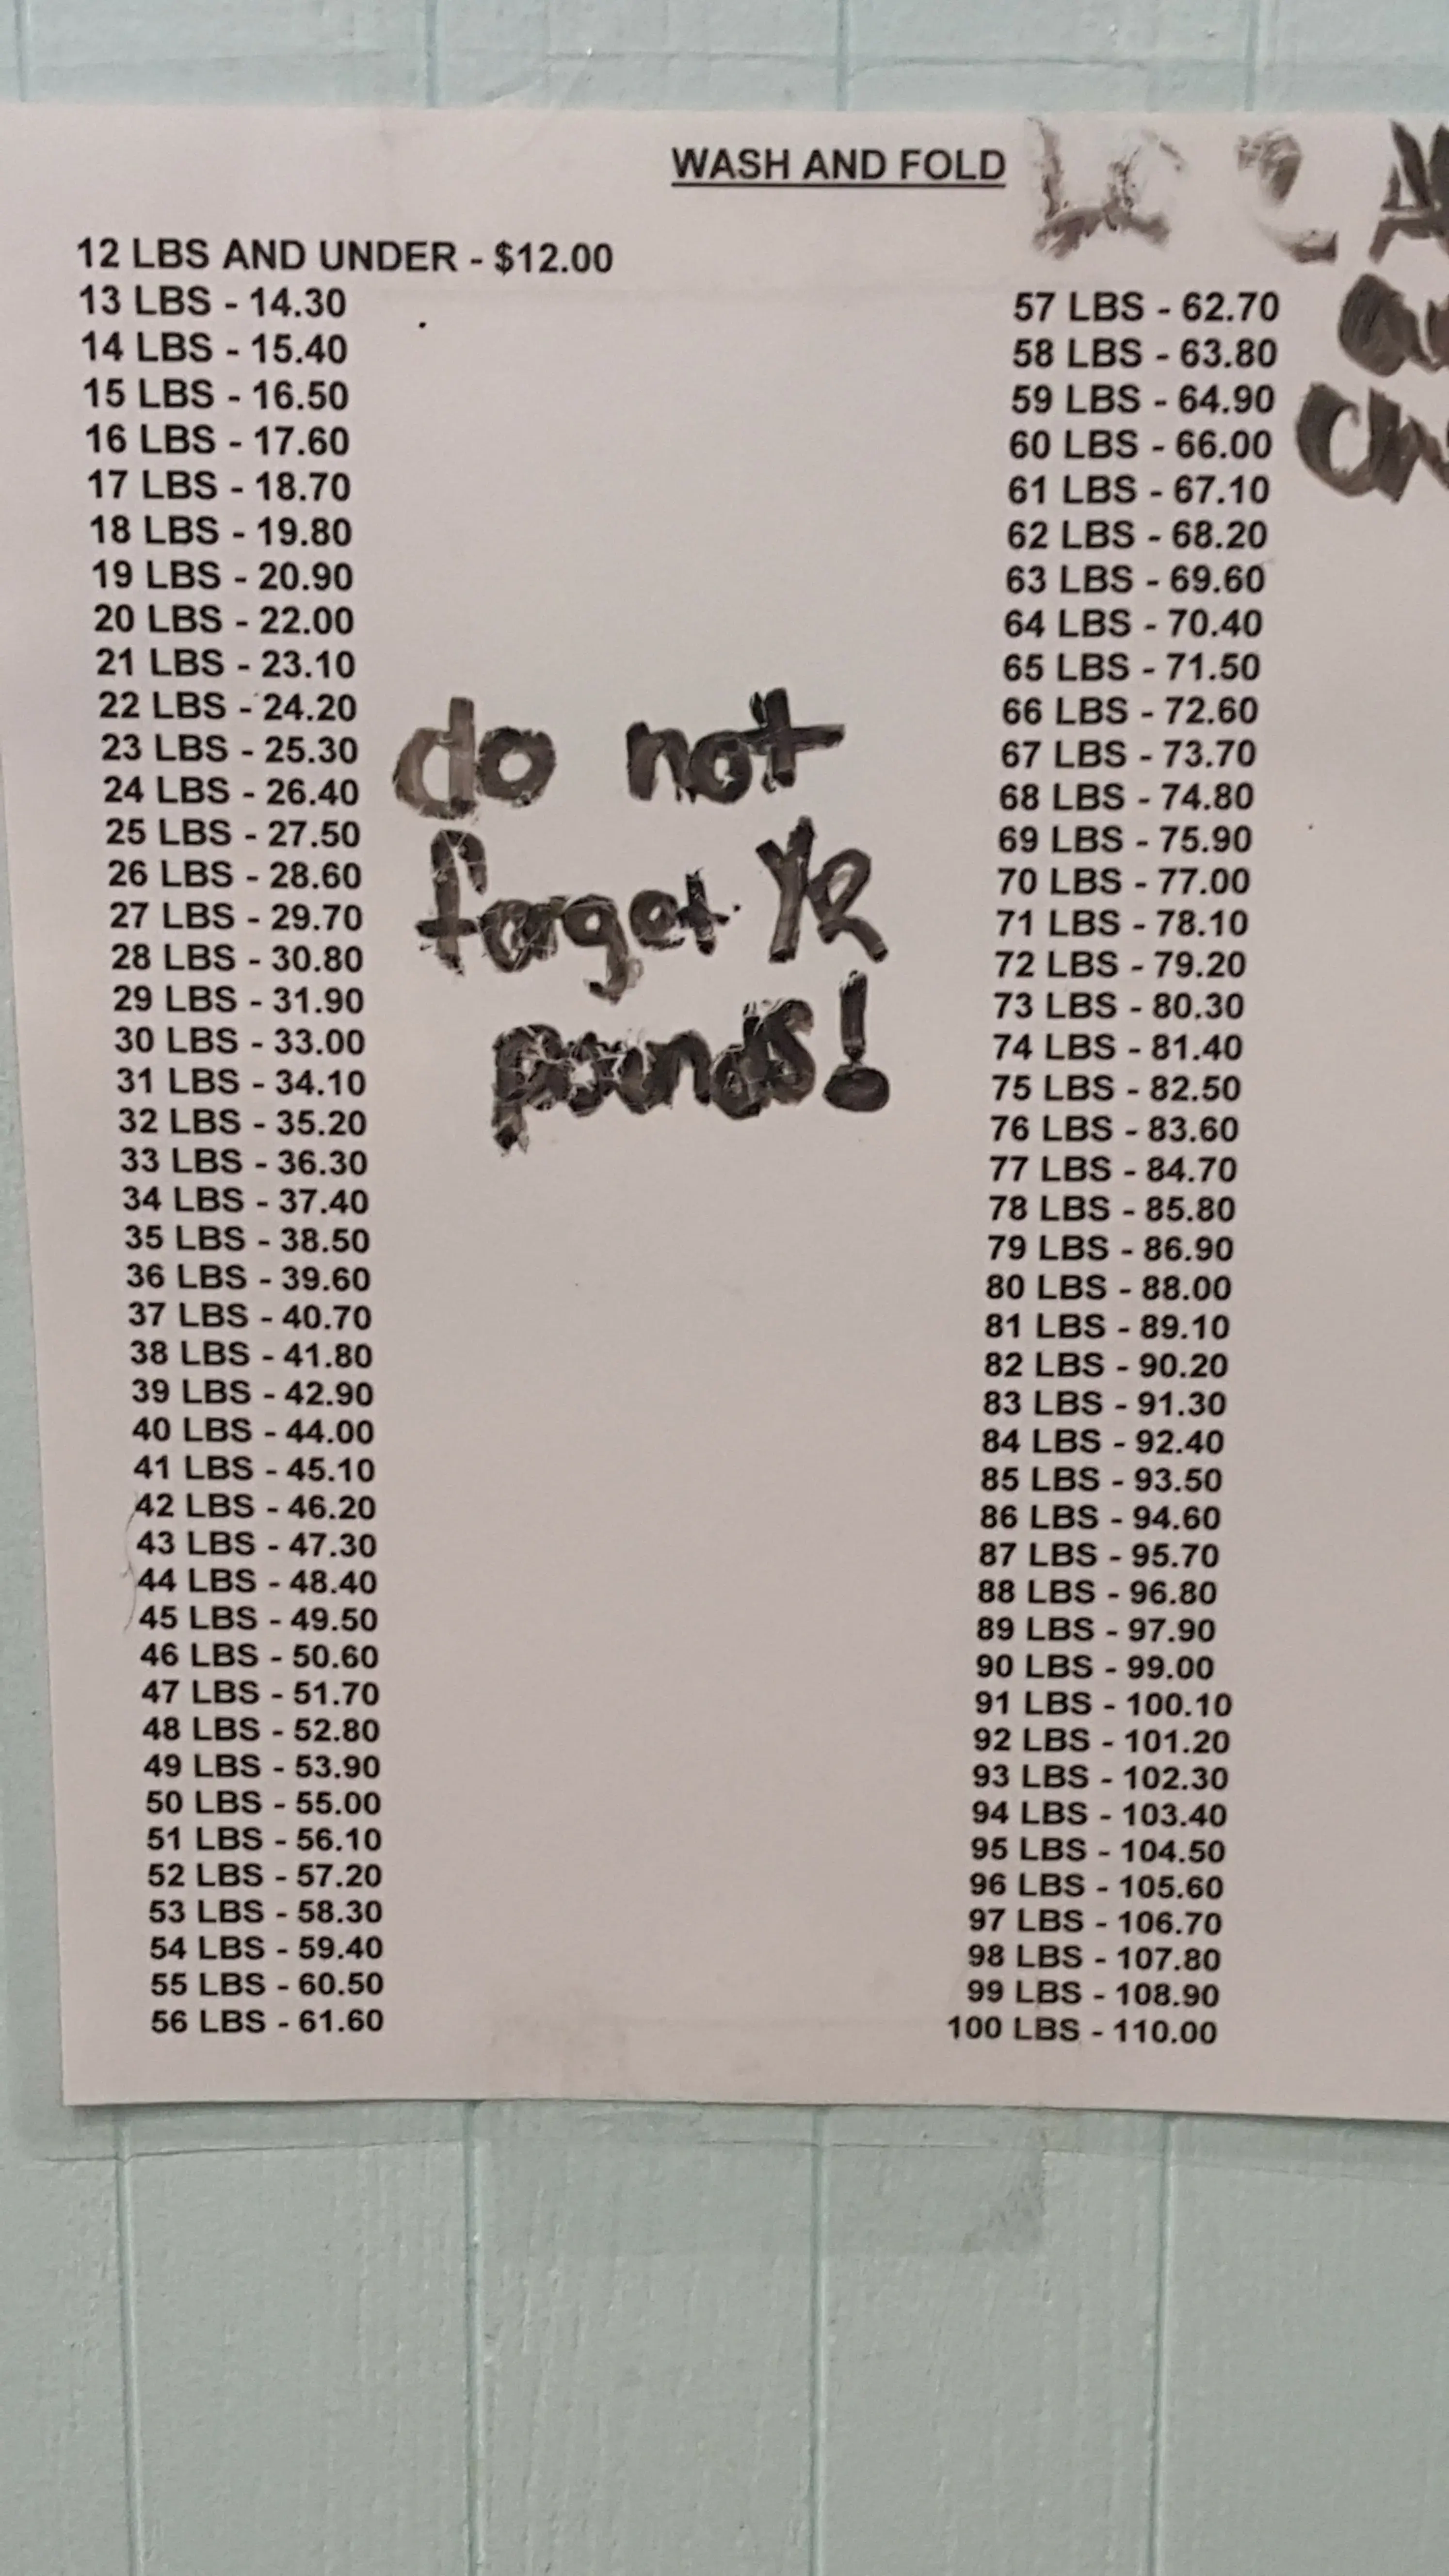 WASH AND FOLD
12 LBS AND UNDER - $12.00
13 LBS - 14.30
14 LBS - 15.40
15 LBS - 16.50
16 LBS - 17.60
17 LBS - 18.70
18 LBS - 19.80
19 LBS - 20.90
20 LBS - 22.00
21 LBS - 23.10
22 LBS - 24.20
23 LBS - 25.30
24 LBS - 26.40
25 LBS - 27.50
26 LBS - 28.60
27 LBS - 29.70
28 LBS - 30.80
29 LBS - 31.90
30 LBS - 33.00
31 LBS - 34.10
32 LBS - 35.20
33 LBS - 36.30
34 LBS - 37.40
35 LBS - 38.50
36 LBS - 39.60
37 LBS - 40.70
38 LBS - 41.80
39 LBS - 42.90
40 LBS - 44.00
41 LBS - 45.10
42 LBS - 46.20
43 LBS - 47.30
44 LBS - 48.40
45 LBS - 49.50
46 LBS - 50.60
47 LBS - 51.70
48 LBS - 52.80
49 LBS - 53.90
50 LBS - 55.00
51 LBS - 56.10
52 LBS - 57.20
53 LBS - 58.30
54 LBS - 59.40
55 LBS - 60.50
56 LBS - 61.60
do not
forget YR
pounds!
57 LBS - 62.70
58 LBS - 63.80
59 LBS - 64.90
60 LBS - 66.00
61 LBS - 67.10
62 LBS - 68.20
63 LBS - 69.60
64 LBS - 70.40
65 LBS - 71.50
66 LBS - 72.60
67 LBS - 73.70
68 LBS - 74.80
69 LBS - 75.90
70 LBS - 77.00
71 LBS - 78.10
72 LBS - 79.20
73 LBS - 80.30
74 LBS - 81.40
75 LBS - 82.50
76 LBS - 83.60
77 LBS - 84.70
78 LBS - 85.80
79 LBS - 86.90
80 LBS - 88.00
81 LBS - 89.10
82 LBS - 90.20
83 LBS - 91.30
84 LBS - 92.40
85 LBS - 93.50
86 LBS - 94.60
87 LBS - 95.70
88 LBS - 96.80
89 LBS - 97.90
90 LBS - 99.00
91 LBS - 100.10
92 LBS - 101.20
93 LBS - 102.30
94 LBS - 103.40
95 LBS - 104.50
96 LBS - 105.60
97 LBS - 106.70
98 LBS - 107.80
99 LBS - 108.90
100 LBS - 110.00